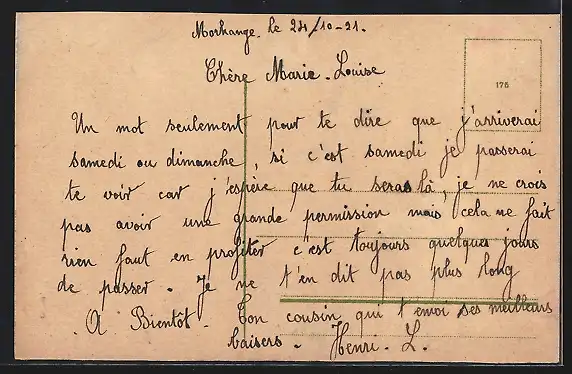 Morhange. le 24/10-21.
Chère Marie-Louise
175
Un mot seulement pour te dire que j'arriverai
samedi ou dimanche, si c'est samedi je passerai
te voir car j'espère que tu seras là, je ne crois
pas avoir une grande permission mais cela ne fait
rien faut en profiter c'est toujours quelques jours
de passer. Je ne t'en dit pas plus long
A Bientôt. Ton cousin qui t'envoi ses meilleurs
baisers. Henri. L.